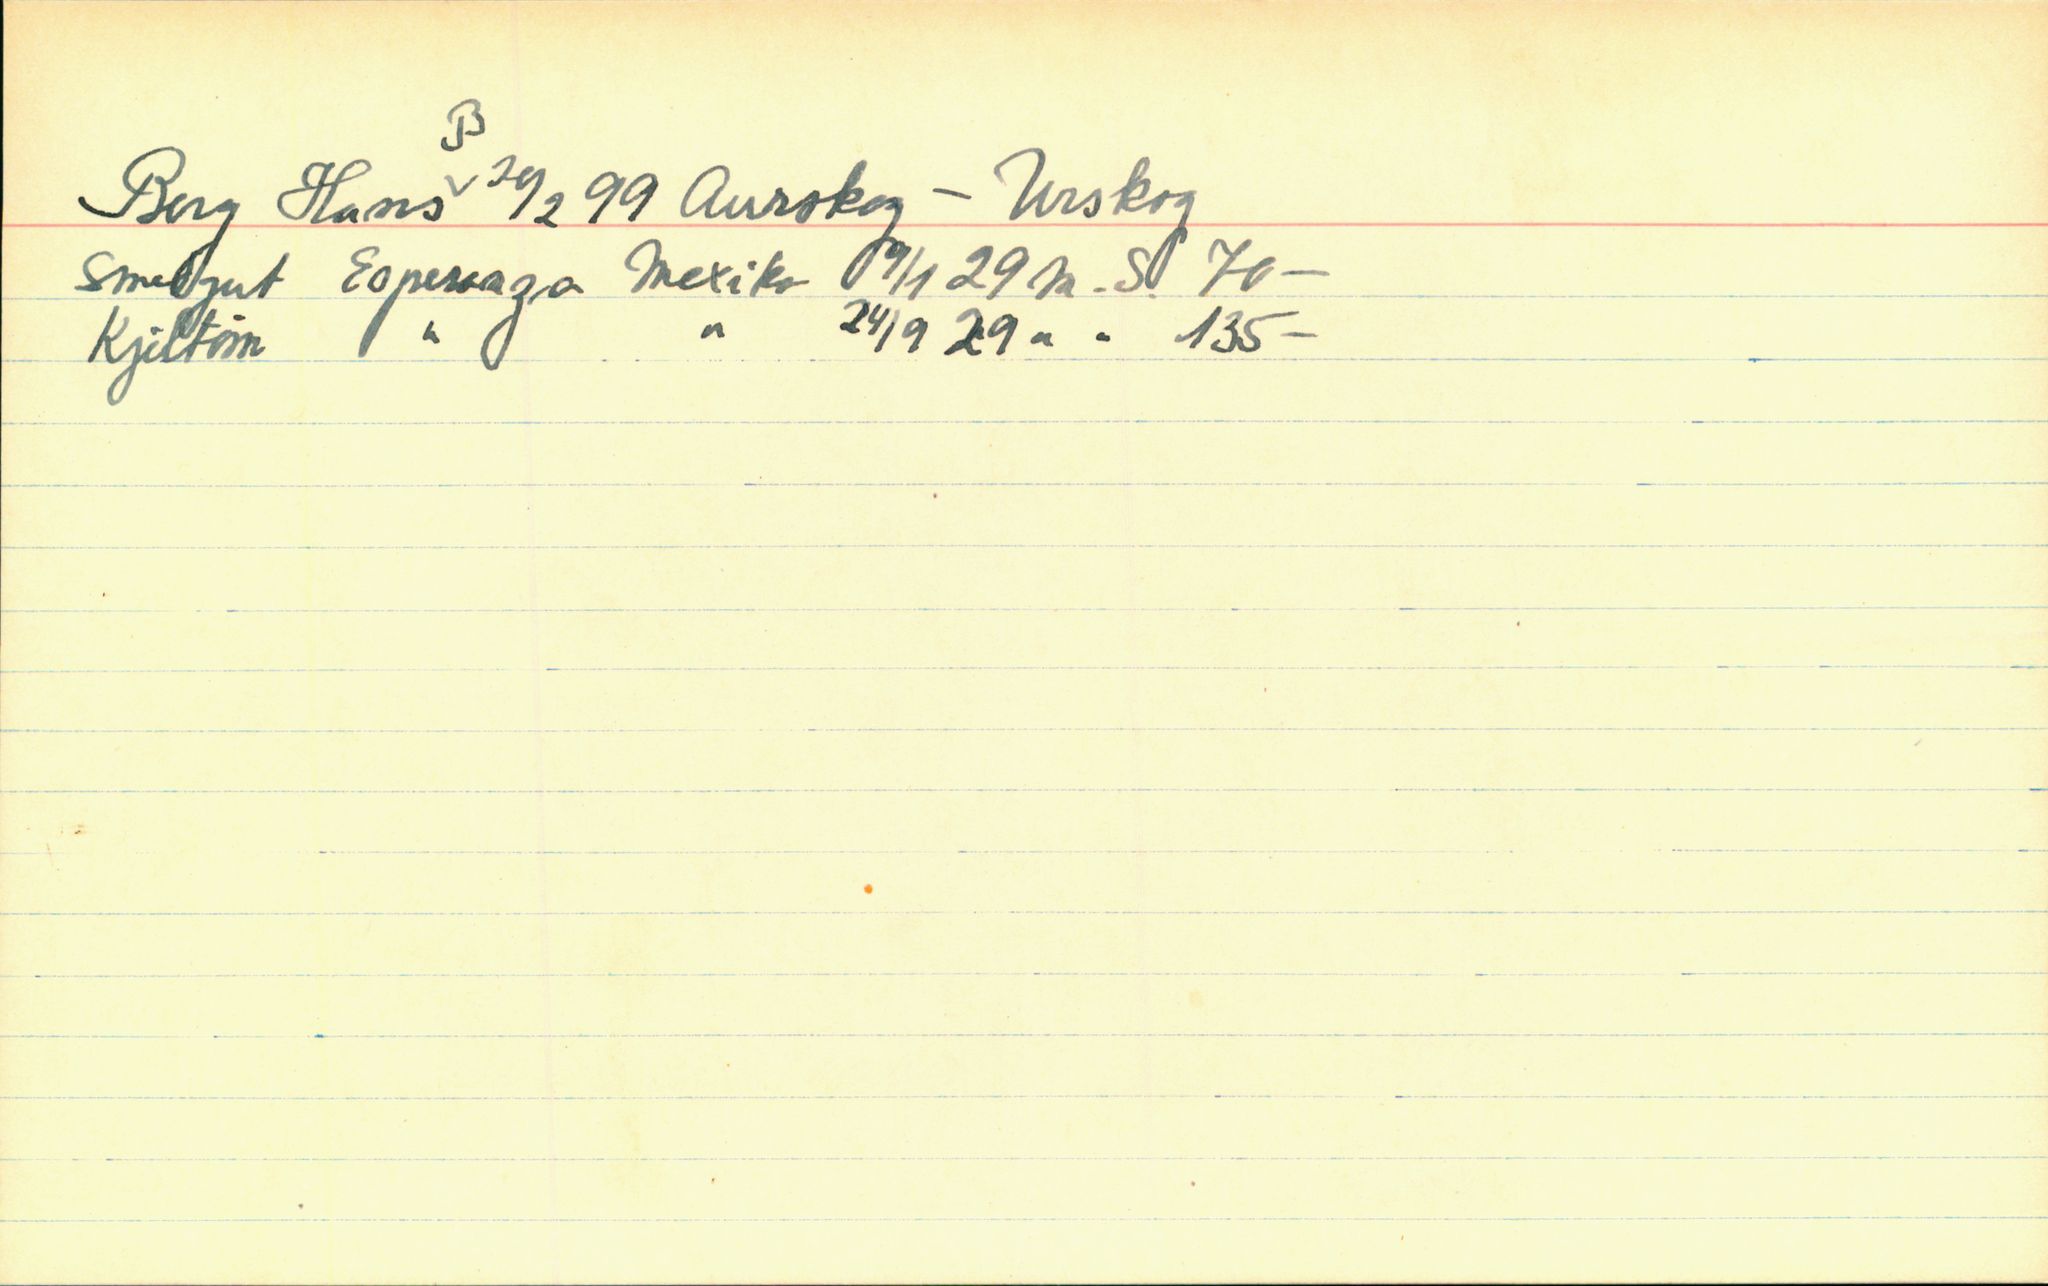 B
Berg Hans 20/2 99 Aurskog - Urskog
Smedgut Esperanza Mexiko 9/1 29 M. S. 70 -
Kjeltöm " " 24/9 29 " " 135 -